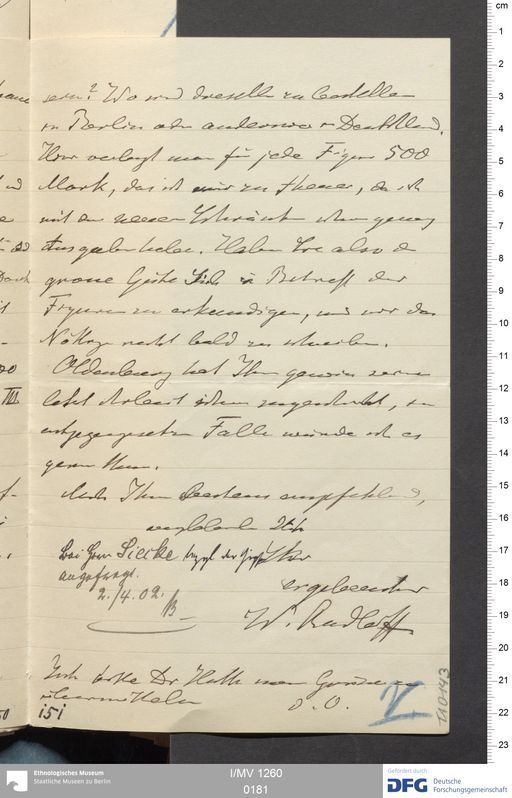 sein? Wo sind dieselben zu bestellen
in Berlin oder anderswo in Deutschland.
Hier verlangt man für jede Figur 500
Mark, das ist mir zu theuer, da ich
mit den neuen Schränken schon genug
Ausgaben habe. Haben Sie also die
grosse Güte Sich in Betreff der
Figuren zu erkundigen, und mir das
Nöthige recht bald zu schreiben.
Oldenburg hat Ihnen gewiss seine
letzte Arbeit schon zugeschickt, im
entgegengesetzten Falle würde ich es
gern thun.
Mich Ihnen bestens empfehlend,
verbleibe ich
Ihr
ergebenster
W. Radloff
Bei Herrn Siecke bezgl. der
angefragt.
2./4.02.
Dr
o. O.
151
V
I/MV 1260
0181
Ethnologisches Museum
Staatliche Museen zu Berlin
Gefördert durch
DFG Deutsche
Forschungsgemeinschaft
cm
1
2
3
4
5
6
7
8
9
10
11
12
13
14
15
16
17
18
19
20
21
22
23